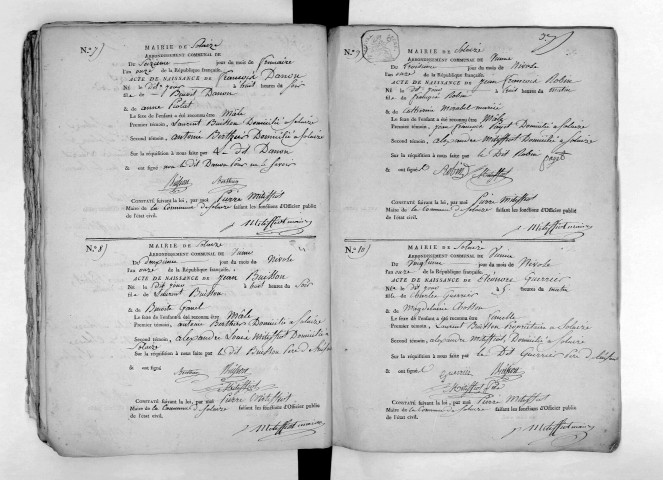 N.o 7)
MAIRIE DE Soleize
ARRONDISSEMENT COMMUNAL DE
Du Seizieme jour du mois de frimaire
l'an onze de la République française.
ACTE DE NAISSANCE de françoise Danon
Né le dit jour à huit heures du soir
fils de Benoit Danon
& de anne
Le sexe de l'enfant a été reconnu être Mâle
Premier témoin, Laurent Buisson Domicilié a Solaize
Second témoin, antoine Berthier Domicilié a Solaize
Sur la réquisition à nous faite par Le dit Danon
& ont signé non le dit Danon Pour ne le Savoir
Buisson Berthier
CONSTATÉ suivant la loi, par moi Pierre Metiffiot
Maire de la Commune de Solaize faisant les fonctions d'Officier public
de l'état civil.
Metiffiot maire
N.o 8)
MAIRIE DE Solaize
ARRONDISSEMENT COMMUNAL DE Vienne
Du Deuxieme jour du mois de Nivose
l'an onze de la République française.
ACTE DE NAISSANCE de Jean Buisson
Né le dit jour à huit heures du Soir
fils de Laurent Buisson
& de Benoite
Le sexe de l'enfant a été reconnu être Mâle
Premier témoin, antoine Berthier Domicilié a Solaize
Second témoin, alexandre Louis Metiffiot Domicilié a
Solaize
Sur la réquisition à nous faite par le dit Buisson Pere de
& ont signé Berthier Buisson
Metiffiot
CONSTATÉ suivant la loi, par moi Pierre Metiffiot
Maire de la Commune de Solaize faisant les fonctions d'Officier public
de l'état civil.
Metiffiot maire
N.o 9)
MAIRIE DE Solaize
ARRONDISSEMENT COMMUNAL DE Vienne
Du jour du mois de Nivose
l'an onze de la République française.
ACTE DE NAISSANCE de Jean françois Robin
Né le dit jour à huit heures du matin
fils de françois Robin
& de Catherine
Le sexe de l'enfant a été reconnu être Mâle
Premier témoin, jean françois Domicilié a Solaize
Second témoin, alexandre Metiffiot Domicilié a Solaize
Sur la réquisition à nous faite par le Dit Robin
& ont signé Robin
Metiffiot
CONSTATÉ suivant la loi, par moi Pierre Metiffiot
Maire de la Commune de Solaize faisant les fonctions d'Officier public
de l'état civil.
Metiffiot maire
N.o 10)
MAIRIE DE Solaize
ARRONDISSEMENT COMMUNAL DE Vienne
Du jour du mois de Nivose
l'an onze de la République française.
ACTE DE NAISSANCE de Eléonore Guerrier
Né le dit jour à 5 heures du matin
fille de Charles Guerrier
& de Magdelaine
Le sexe de l'enfant a été reconnu être femelle
Premier témoin, Laurent Buisson Propriétaire a Solaize
Second témoin, alexandre Metiffiot Domicilié a Solaize
Sur la réquisition à nous faite par Le Dit Guerrier Pere de
& ont signé Guerrier Buisson
Metiffiot
CONSTATÉ suivant la loi, par moi Pierre Metiffiot
Maire de la Commune de Solaize faisant les fonctions d'Officier public
de l'état civil.
Metiffiot maire